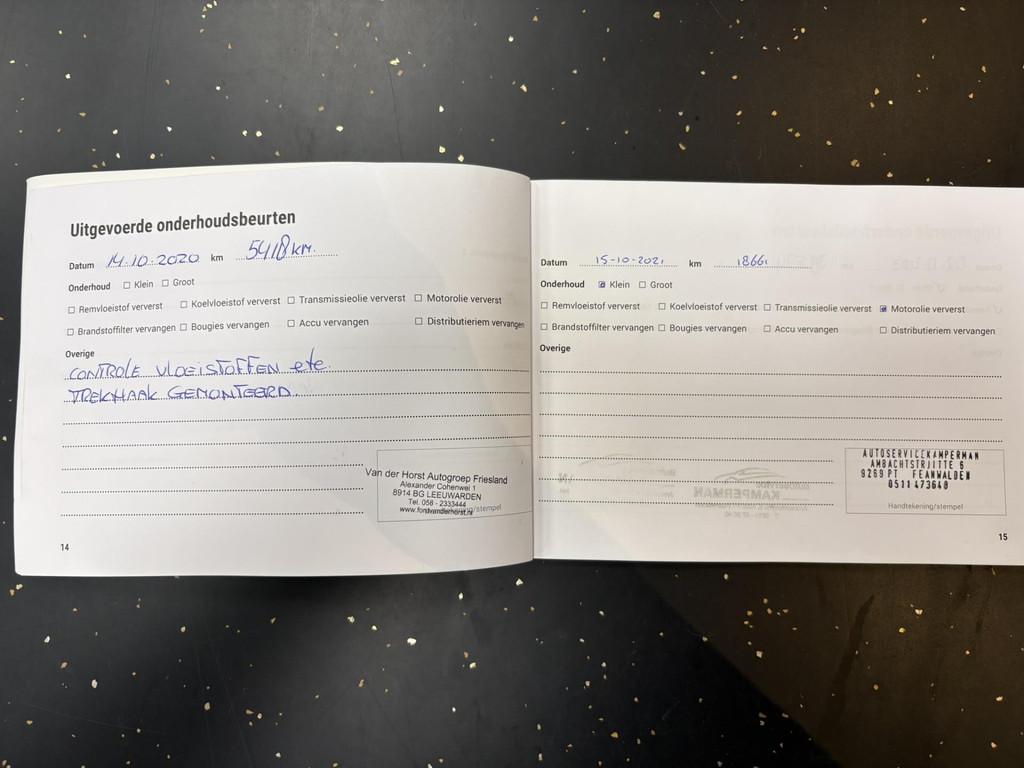 Uitgevoerde onderhoudsbeurten
Datum 14.10.2020 km 5418 km.
Onderhoud ☐ Klein ☐ Groot
☐ Remvloeistof ververst ☐ Koelvloeistof ververst ☐ Transmissieolie ververst ☐ Motorolie ververst
☐ Brandstoffilter vervangen ☐ Bougies vervangen ☐ Accu vervangen ☐ Distributieriem vervangen
Overige
CONTROLE VLOEISTOFFEN etc.
TREKHAAK GEMONTEERD.
Van der Horst Autogroep Friesland
Alexander Cohenwei 1
8914 BG LEEUWARDEN
Tel. 058 - 2333444
www.fordvanderhorst.nl
/stempel
14
Datum 15-10-2021 km 18661
Onderhoud ☒ Klein ☐ Groot
☐ Remvloeistof ververst ☐ Koelvloeistof ververst ☐ Transmissieolie ververst ☒ Motorolie ververst
☐ Brandstoffilter vervangen ☐ Bougies vervangen ☐ Accu vervangen ☐ Distributieriem vervangen
Overige
AUTOSERVICEKAMPERMAN
AMBACHTSTRJITTE 6
9269 PT FEANWALDEN
0511 473648
Handtekening/stempel
15